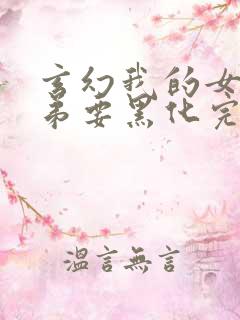 玄幻我的女
弟要黑化完
溫言無言